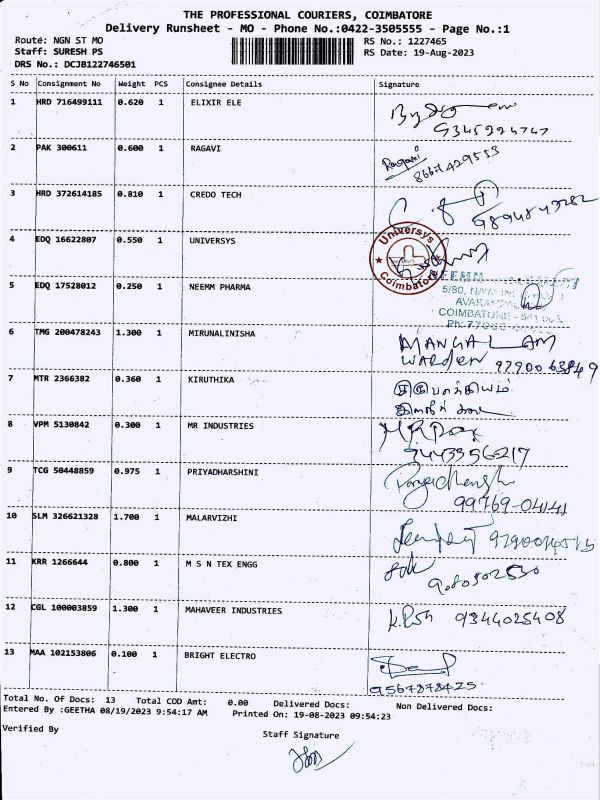 THE PROFESSIONAL COURIERS, COIMBATORE
Delivery Runsheet - MO - Phone No.:0422-3505555 - Page No.:1
Route: NGN ST MO
Staff: SURESH PS
DRS No.: DCJB122746501
RS No.: 1227465
RS Date: 19-Aug-2023
S No Consignment No Weight PCS Consignee Details Signature
1 HRD 716499111 0.620 1 ELIXIR ELE
2 PAK 300611 0.600 1 RAGAVI
Ragavi
8667429553
3 HRD 372614185 0.810 1 CREDO TECH
4 EDQ 16622807 0.550 1 UNIVERSYS
Universys
Coimbatore
5 EDQ 17528012 0.250 1 NEEMM PHARMA
5/80,
COIMBATORE
6 TMG 200478243 1.300 1 MIRUNALINISHA
MANGALAM
WARDEN
7 MTR 2366382 0.360 1 KIRUTHIKA
8 VPM 5130842 0.300 1 MR INDUSTRIES
9443956217
9 TCG 50448859 0.975 1 PRIYADHARSHINI
99769-04141
10 SLM 326621328 1.700 1 MALARVIZHI
11 KRR 1266644 0.800 1 M S N TEX ENGG
9080502530
12 CGL 100003859 1.300 1 MAHAVEER INDUSTRIES
9344025408
13 MAA 102153806 0.100 1 BRIGHT ELECTRO
9567878425
Total No. Of Docs: 13 Total COD Amt: 0.00 Delivered Docs: Non Delivered Docs:
Entered By :GEETHA 08/19/2023 9:54:17 AM Printed On: 19-08-2023 09:54:23
Verified By
Staff Signature